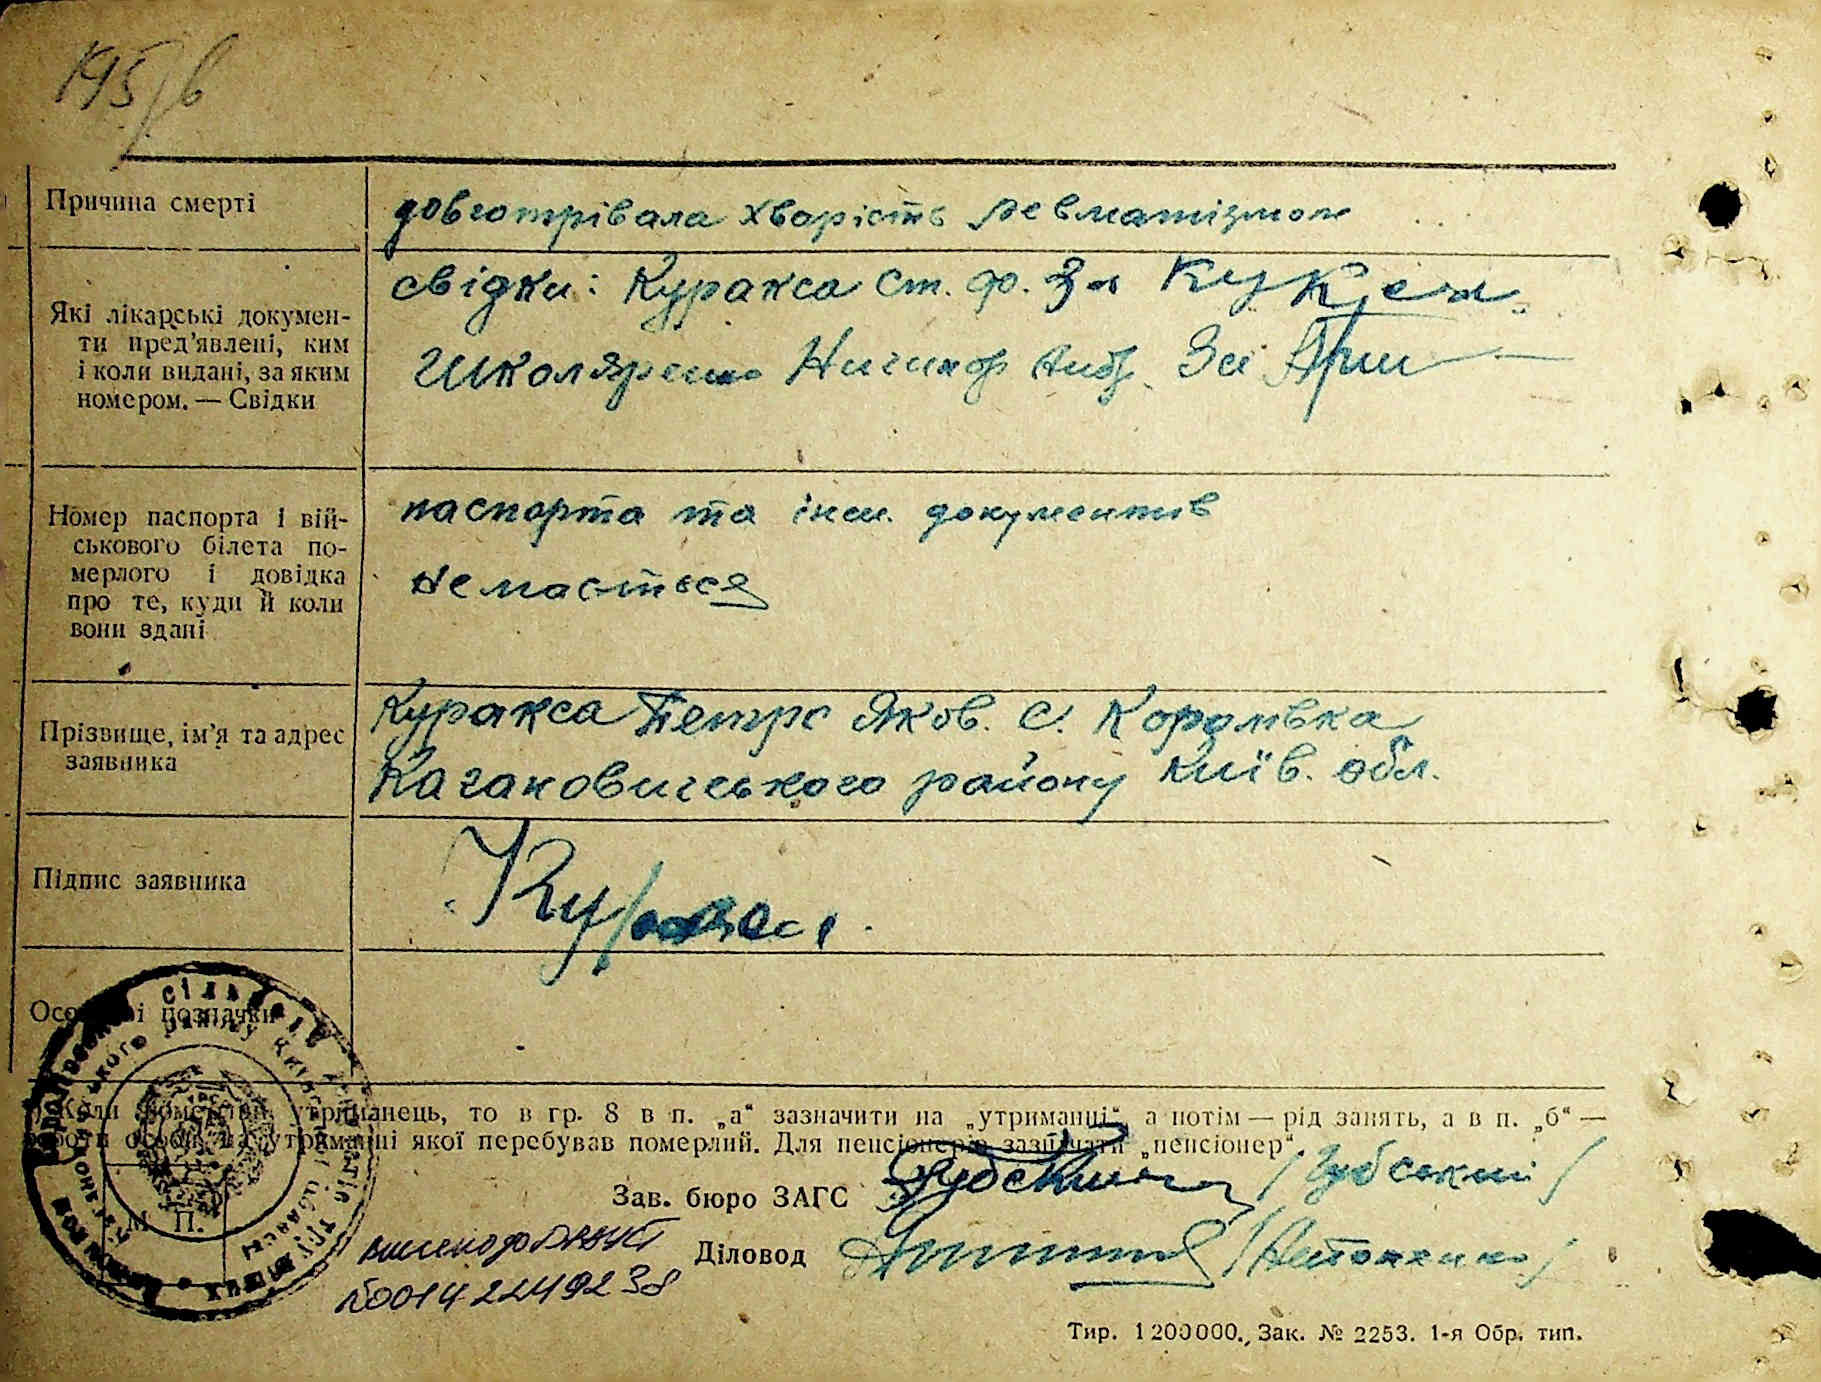 195
Причина смерті
довготрівала хворість ревматізмом
Які лікарські докумен-
ти пред’явлені, ким
і коли видані, за яким
номером. — Свідки
свідки: Куракса Ст. Ф. За
Школяренко Ничипор Анд. За
Номер паспорта і вій-
ськового білета по-
мерлого і довідка
про те, куди й коли
вони здані
паспорта та інш. документів
не мається
Прізвище, ім’я та адрес
заявника
Куракса Петро Яков. с. Коромвка
Кагановичського району Київ. обл.
Підпис заявника
Особливі позначки
Коли утриманець, то в гр. 8 в п. „а“ зазначити на „утриманні“, а потім — рід занять, а в п. „б“ —
роботи особи, на утриманні якої перебував померлий. Для пенсіонерів зазначати „пенсіонер“.
Зав. бюро ЗАГС /Губський/
Діловод /Антоненко/
М. П.
Тир. 1200000., Зак. № 2253. 1-я Обр. тип.